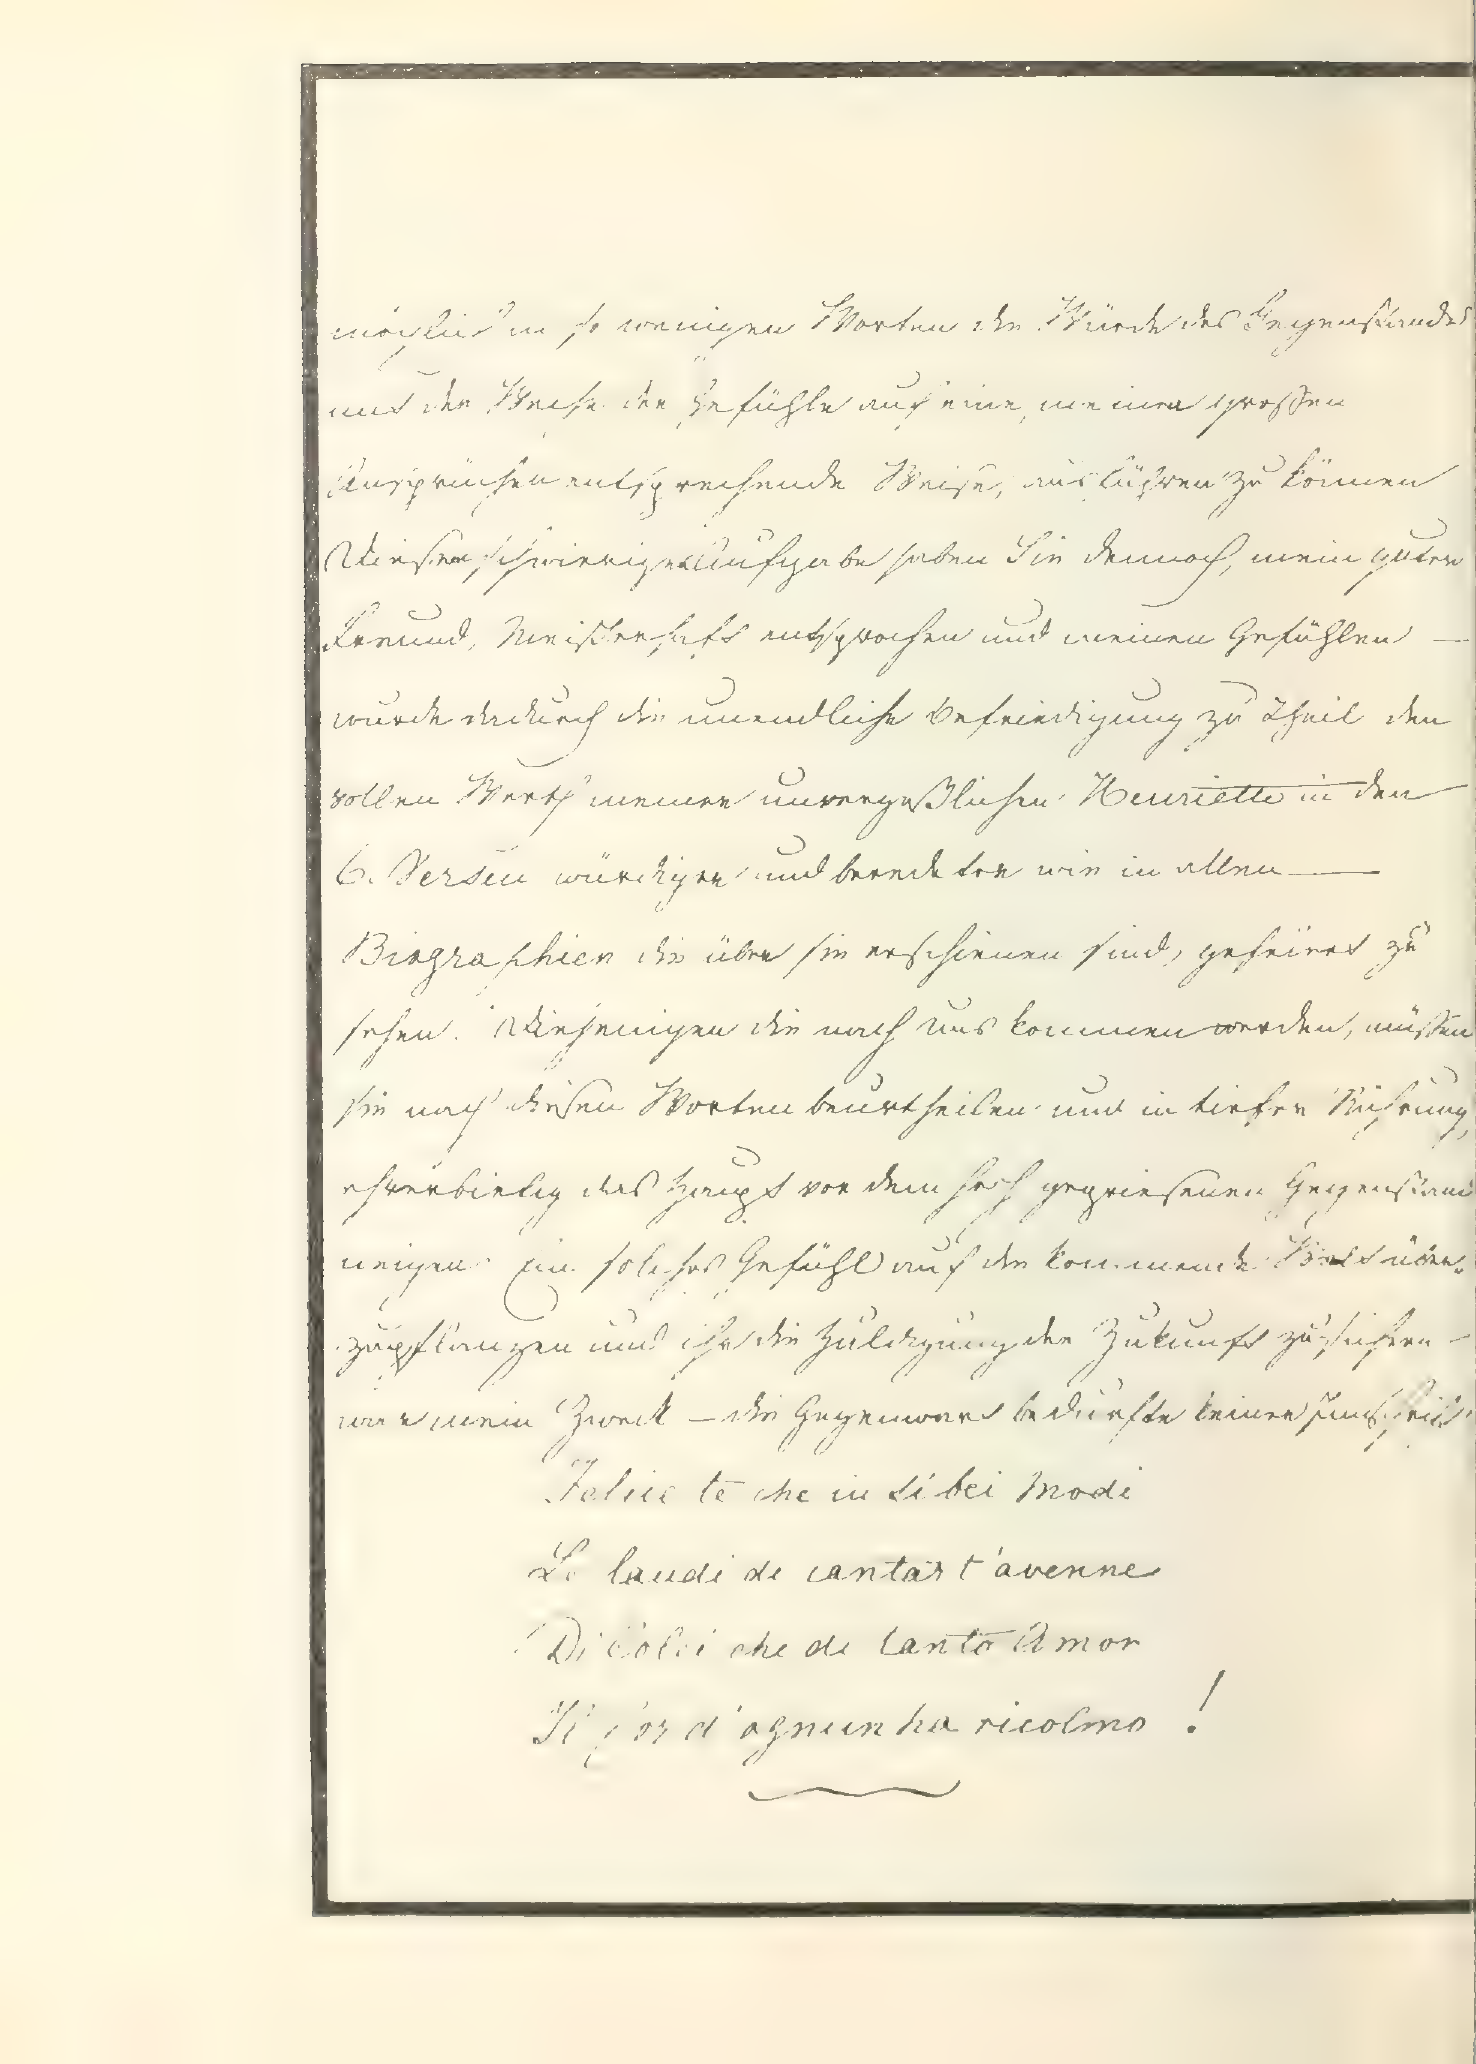 möglich in so wenigen Worten die Würde des Gegenstandes
und der Weise der Gefühle auf eine, meinen grossen
Ansprüchen entsprechende Weise, ausführen zu können
Dieser schwierigen Aufgabe haben Sie dennoch, mein guter
Freund, Meisterhaft entsprochen und meinen Gefühlen —
wurde dadurch die unendliche Befriedigung zu Theil den
vollen Werth meiner unvergeßlichen Henriette in den
6. Versen würdiger und beredter wie in allen —
Biographien die über sie erschienen sind, gefeiert zu
sehen. Diejenigen die nach uns kommen werden, müssen
sie nach diesen Worten beurtheilen und in tiefer Rührung,
ehrerbietig das Haupt vor dem hoch gepriesenen Gegenstand
neigen. Ein solches Gefühl auf die kommende Welt über-
zupflanzen und ihr die Huldigung der Zukunft zu sichern —
war mein Zweck — die Gegenwart bedurfte keiner
Felice te che in si bei Modi
Le laudi di cantar t'avenne
Di Colei che di tanto Amor
Il cor d'ognun ha ricolmo !